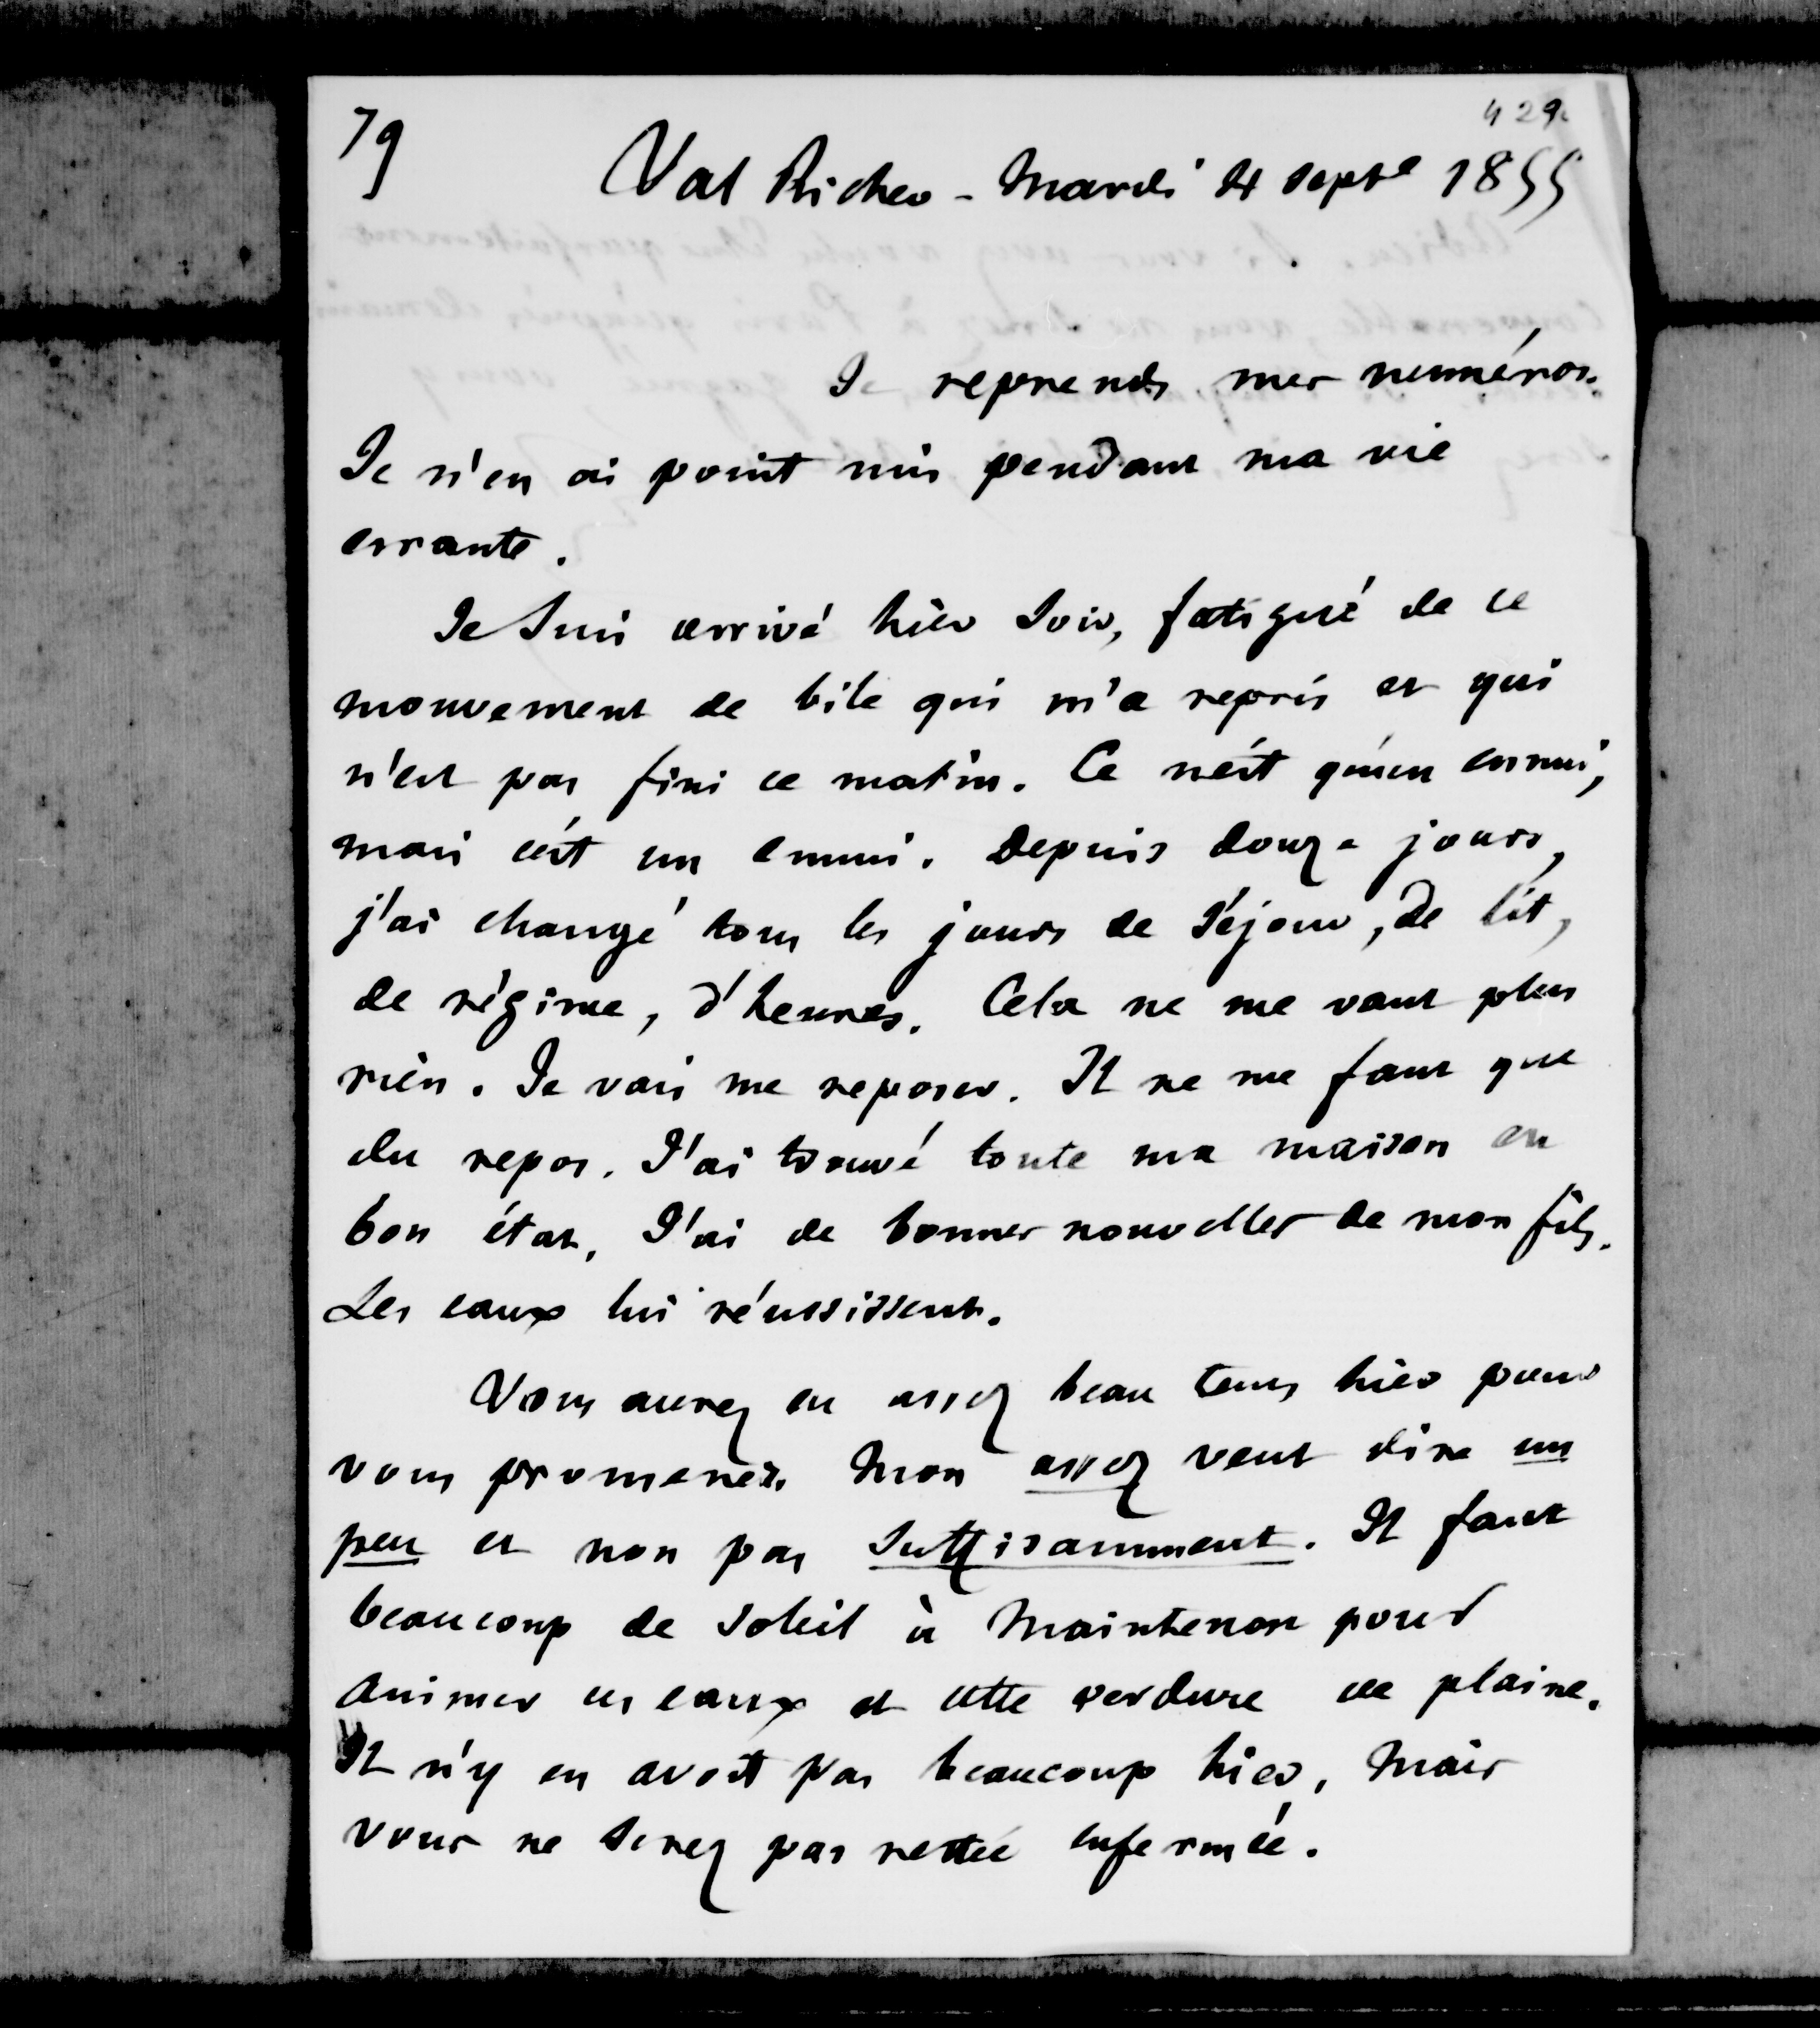 79
429.
Val Richer - Mardi 4 Septe 1855
Je reprends mes numéros.
Je n'en ai point mis pendant ma vie
errante.
Je suis arrivé hier soir, fatigué de ce
mouvement de bile qui m'a repris et qui
n'est pas fini ce matin. Ce n'est qu'un ennui,
mais c'est un ennui. Depuis douze jours,
j'ai changé tous les jours de séjour, de lit,
de régime, d'heures. Cela ne me vaut plus
rien. Je vais me reposer. Il ne me faut que
du repos. J'ai trouvé toute ma maison en
bon état. J'ai de bonnes nouvelles de mon fils.
Les eaux lui réussissent.
Vous aurez eu assez beau tems hier pour
vous promener. Mon assez veut dire un
peu et non pas suffisamment. Il faut
beaucoup de soleil à Maintenon pour
animer ces eaux et cette verdure de plaine.
Il n'y en avoit pas beaucoup hier, Mais
vous ne serez pas restée enfermée.